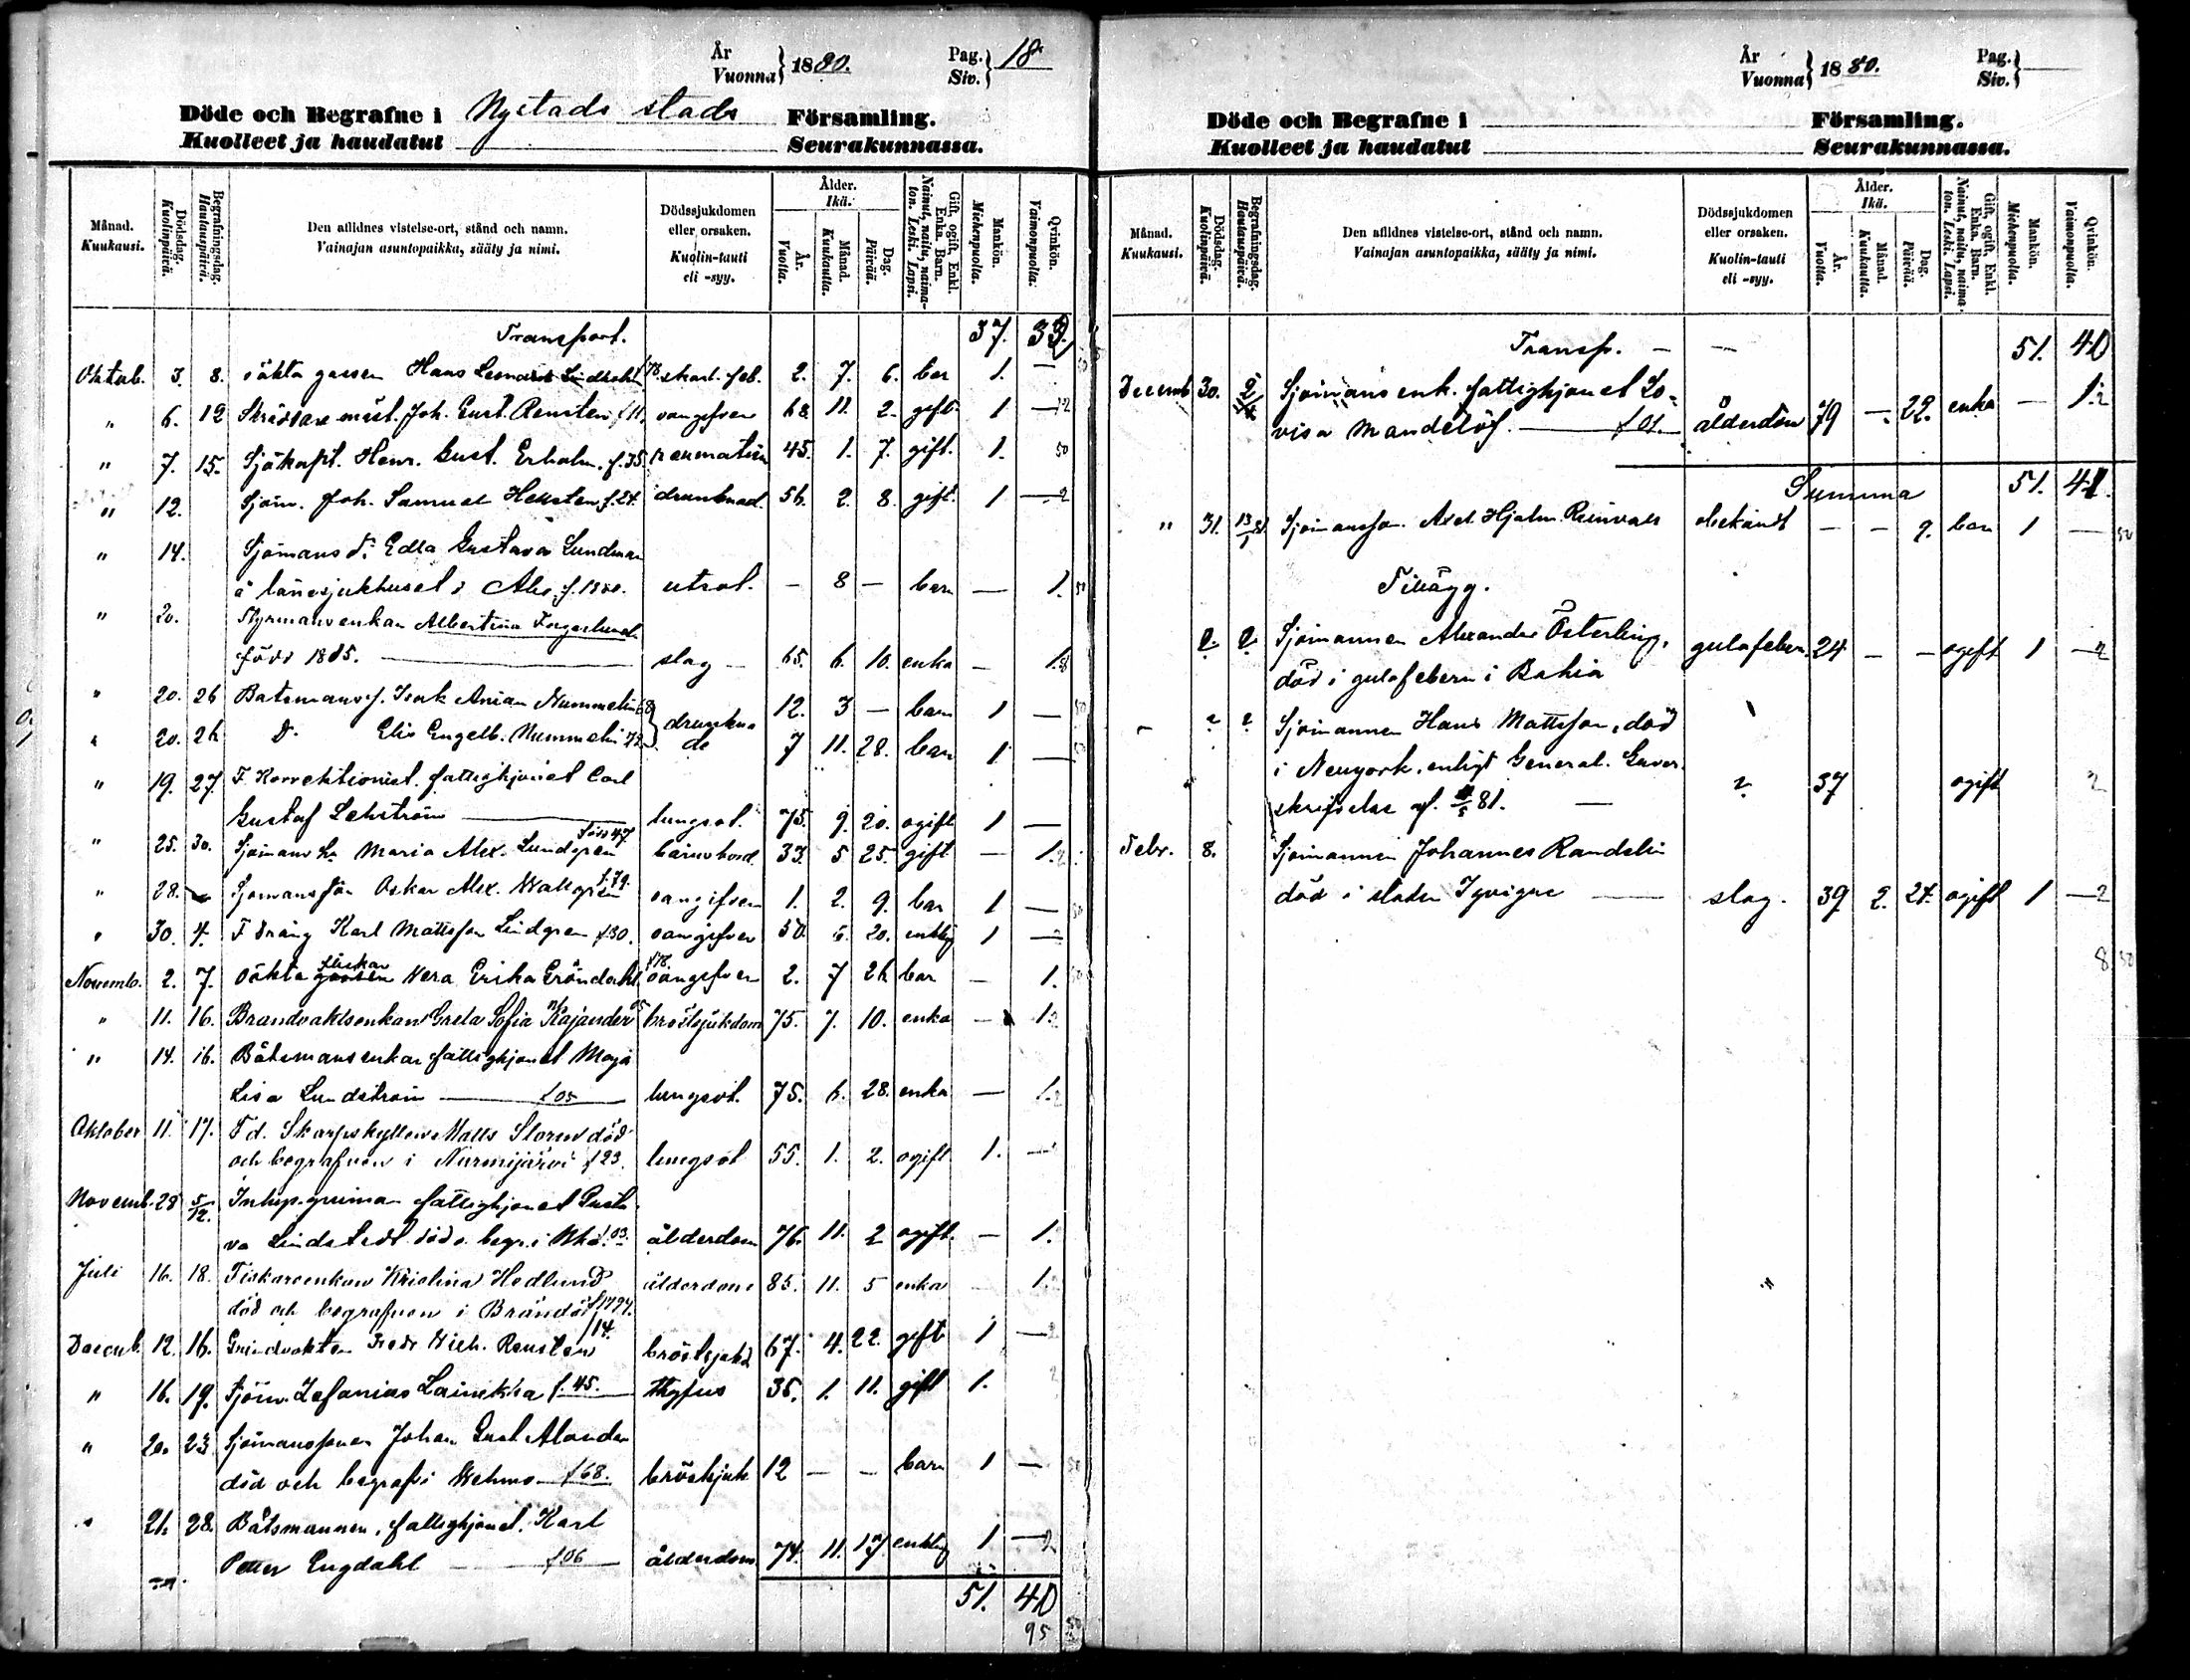 År
Vuonna } 1880.
Pag.
Siv. } 18
Döde och Begrafne i Nystads stads Församling.
Kuolleet ja haudatut Seurakunnassa.
Månad. Kuukausi.
Dödsdag. Kuolinpäivä.
Begrafningsdag. Hautauspäivä.
Den aflidnes vistelse-ort, stånd och namn.
Vainajan asuntopaikka, sääty ja nimi.
Dödssjukdomen eller orsaken.
Kuolin-tauti eli -syy.
Ålder. Ikä.
År. Vuotta.
Månad. Kuukautta.
Dag. Päivää.
Gift, ogift, Enkl. Enka. Barn.
Nainut, naitu, naimaton. Leski. Lapsi.
Mankön. Miehenpuolta.
Qvinkön. Vaimonpuolta.
Transport. 37. 39
Oktob. 3. 8. oäkta gossen Hans Lennart Lindroth f78. skarl. feb. 2. 7. 6. bar 1. —
" 6. 12 Skräddare mäst. Joh. Gust. Rensten f11. oangifven 68 11. 2. gift 1 —
" 7. 15. Sjökapt. Henr. Gust. Erholm. f.35 reumatism 45. 1. 7. gift. 1.
" 12. Sjöm. Joh. Samuel Hellsten f.24. drunknad. 56. 2. 8. gift. 1 —
" 14. Sjömans d: Edla Gustava Lundman
å länesjukhuset i Åbo, f. 1880. utsot. — 8 — barn — 1.
" 20. Styrmansenkan Albertina Fagerlund
född 1815. — slag — 65. 6. 10. enka — 1.
" 20. 26 Båtsmans s. Isak Anian Nummelin 68 } drunkna 12. 3 — barn 1 —
" 20. 26 D. Elis Engelb. Nummelin 72 de 7 11. 28. barn 1 —
" 19. 27. F Korrektionist. fattighjonet Carl
Gustaf Lehström — lungsot. 75. 9. 20. ogift 1 —
" 25. 30. Sjömans h. Maria Alex. Lundgren född 47 barnsbörd. 33. 5 25. gift — 1.
" 28. Sjömansson Oskar Alex. Wallgren f.79. oangifven 1. 2. 9. bar 1 —
" 30. 4. F dräng Karl Mattsson Lindgren f30. oangifven 50. 5. 20. enkling 1 —
Novemb. 2. 7. oäkta flickan Vera Erika Gröndahl f78. oangifven 2. 7 26 bar — 1.
" 11. 16. Brandvaktsenkan Greta Sofia Kajander 05 bröstsjukdom 75. 7. 10. enka — 1.
" 14. 16. Båtsmansenkan fattighjonet Maja
Lisa Lundström — f05 lungsot. 75. 6. 28. enka — 1.
Oktober 11. 17. F d. Skarpskytten Matts Storm död
och begrafven i Nurmijärvi f23. lungsot 55. 1. 2. ogift 1. —
Novemb. 28 5/12. Inhys.quinnan fattighjonet Gusta
va Lindstedt död o. begr. i Nkb. 03 ålderdom 76. 11. 2 ogift. — 1.
Juli 16. 18. Fiskareenkan Kristina Hedlund ålderdom 85. 11. 5 enka 1.
död och begrafven i Brändö f1794.
Decemb. 12. 16. Grindvakten Fredr Wilh. Rensten f14. bröstsjukd 67. 4. 22. gift 1 —
" 16. 19. Sjöm. Zefanias Lainekka f.45. thyfus 35. 1. 11. gift 1.
" 20. 23 Sjömanssonen Johan Gust. Alander
död och begrafv i Wehmo f68. bröstsjuk 12 — — barn 1 —
" 21. 28. Båtsmannen, fattighjonet. Karl
Petter Engdahl — f06 ålderdom 74. 11. 17. enkling 1 —
51. 40
95
År
Vuonna } 1880.
Pag.
Siv. }
Döde och Begrafne i Församling.
Kuolleet ja haudatut Seurakunnassa.
Månad. Kuukausi.
Dödsdag. Kuolinpäivä.
Begrafningsdag. Hautauspäivä.
Den aflidnes vistelse-ort, stånd och namn.
Vainajan asuntopaikka, sääty ja nimi.
Dödssjukdomen eller orsaken.
Kuolin-tauti eli -syy.
Ålder. Ikä.
År. Vuotta.
Månad. Kuukautta.
Dag. Päivää.
Gift, ogift, Enkl. Enka. Barn.
Nainut, naitu, naimaton. Leski. Lapsi.
Mankön. Miehenpuolta.
Qvinkön. Vaimonpuolta.
Transp. — — 51. 40
Decemb 30. Sjömans enk. fattighjonet Lo-
visa Mandelöf. — f01. ålderdom 79 — 22. enka — 1.
Summa 51. 41.
" 31. 13/1 Sjömansson. Axel Hjalm. Reinvall obekandt — — 9. barn 1 —
Tillägg.
?. ?. Sjömannen Alexander Österling,
död i gulafebern i Bahia gulafebern. 24 — — ogift 1 —
? ? Sjömannen Hans Mattsson, död
i Newyork, enligt General. Guver.
skrifvelse af. 4/5 81. — ? 37 ogift
Febr. 8. Sjömannen Johannes Randelin
död i staden — slag. 39 2. 24. ogift 1 —
8 50